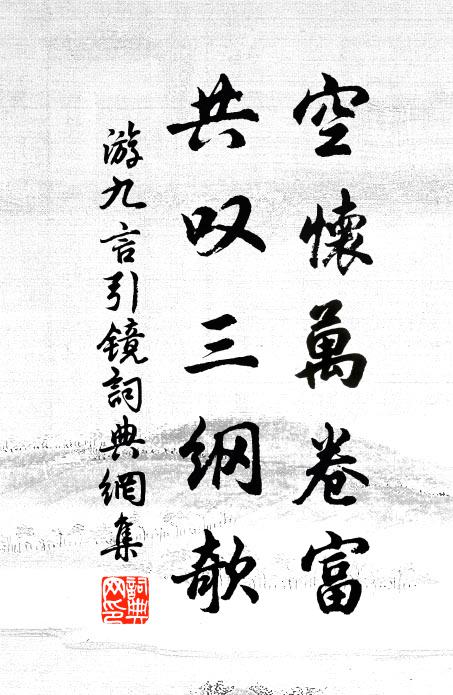 空懷萬卷富
共叹三纲欹
游九言引镜詞典網集
詞典网印